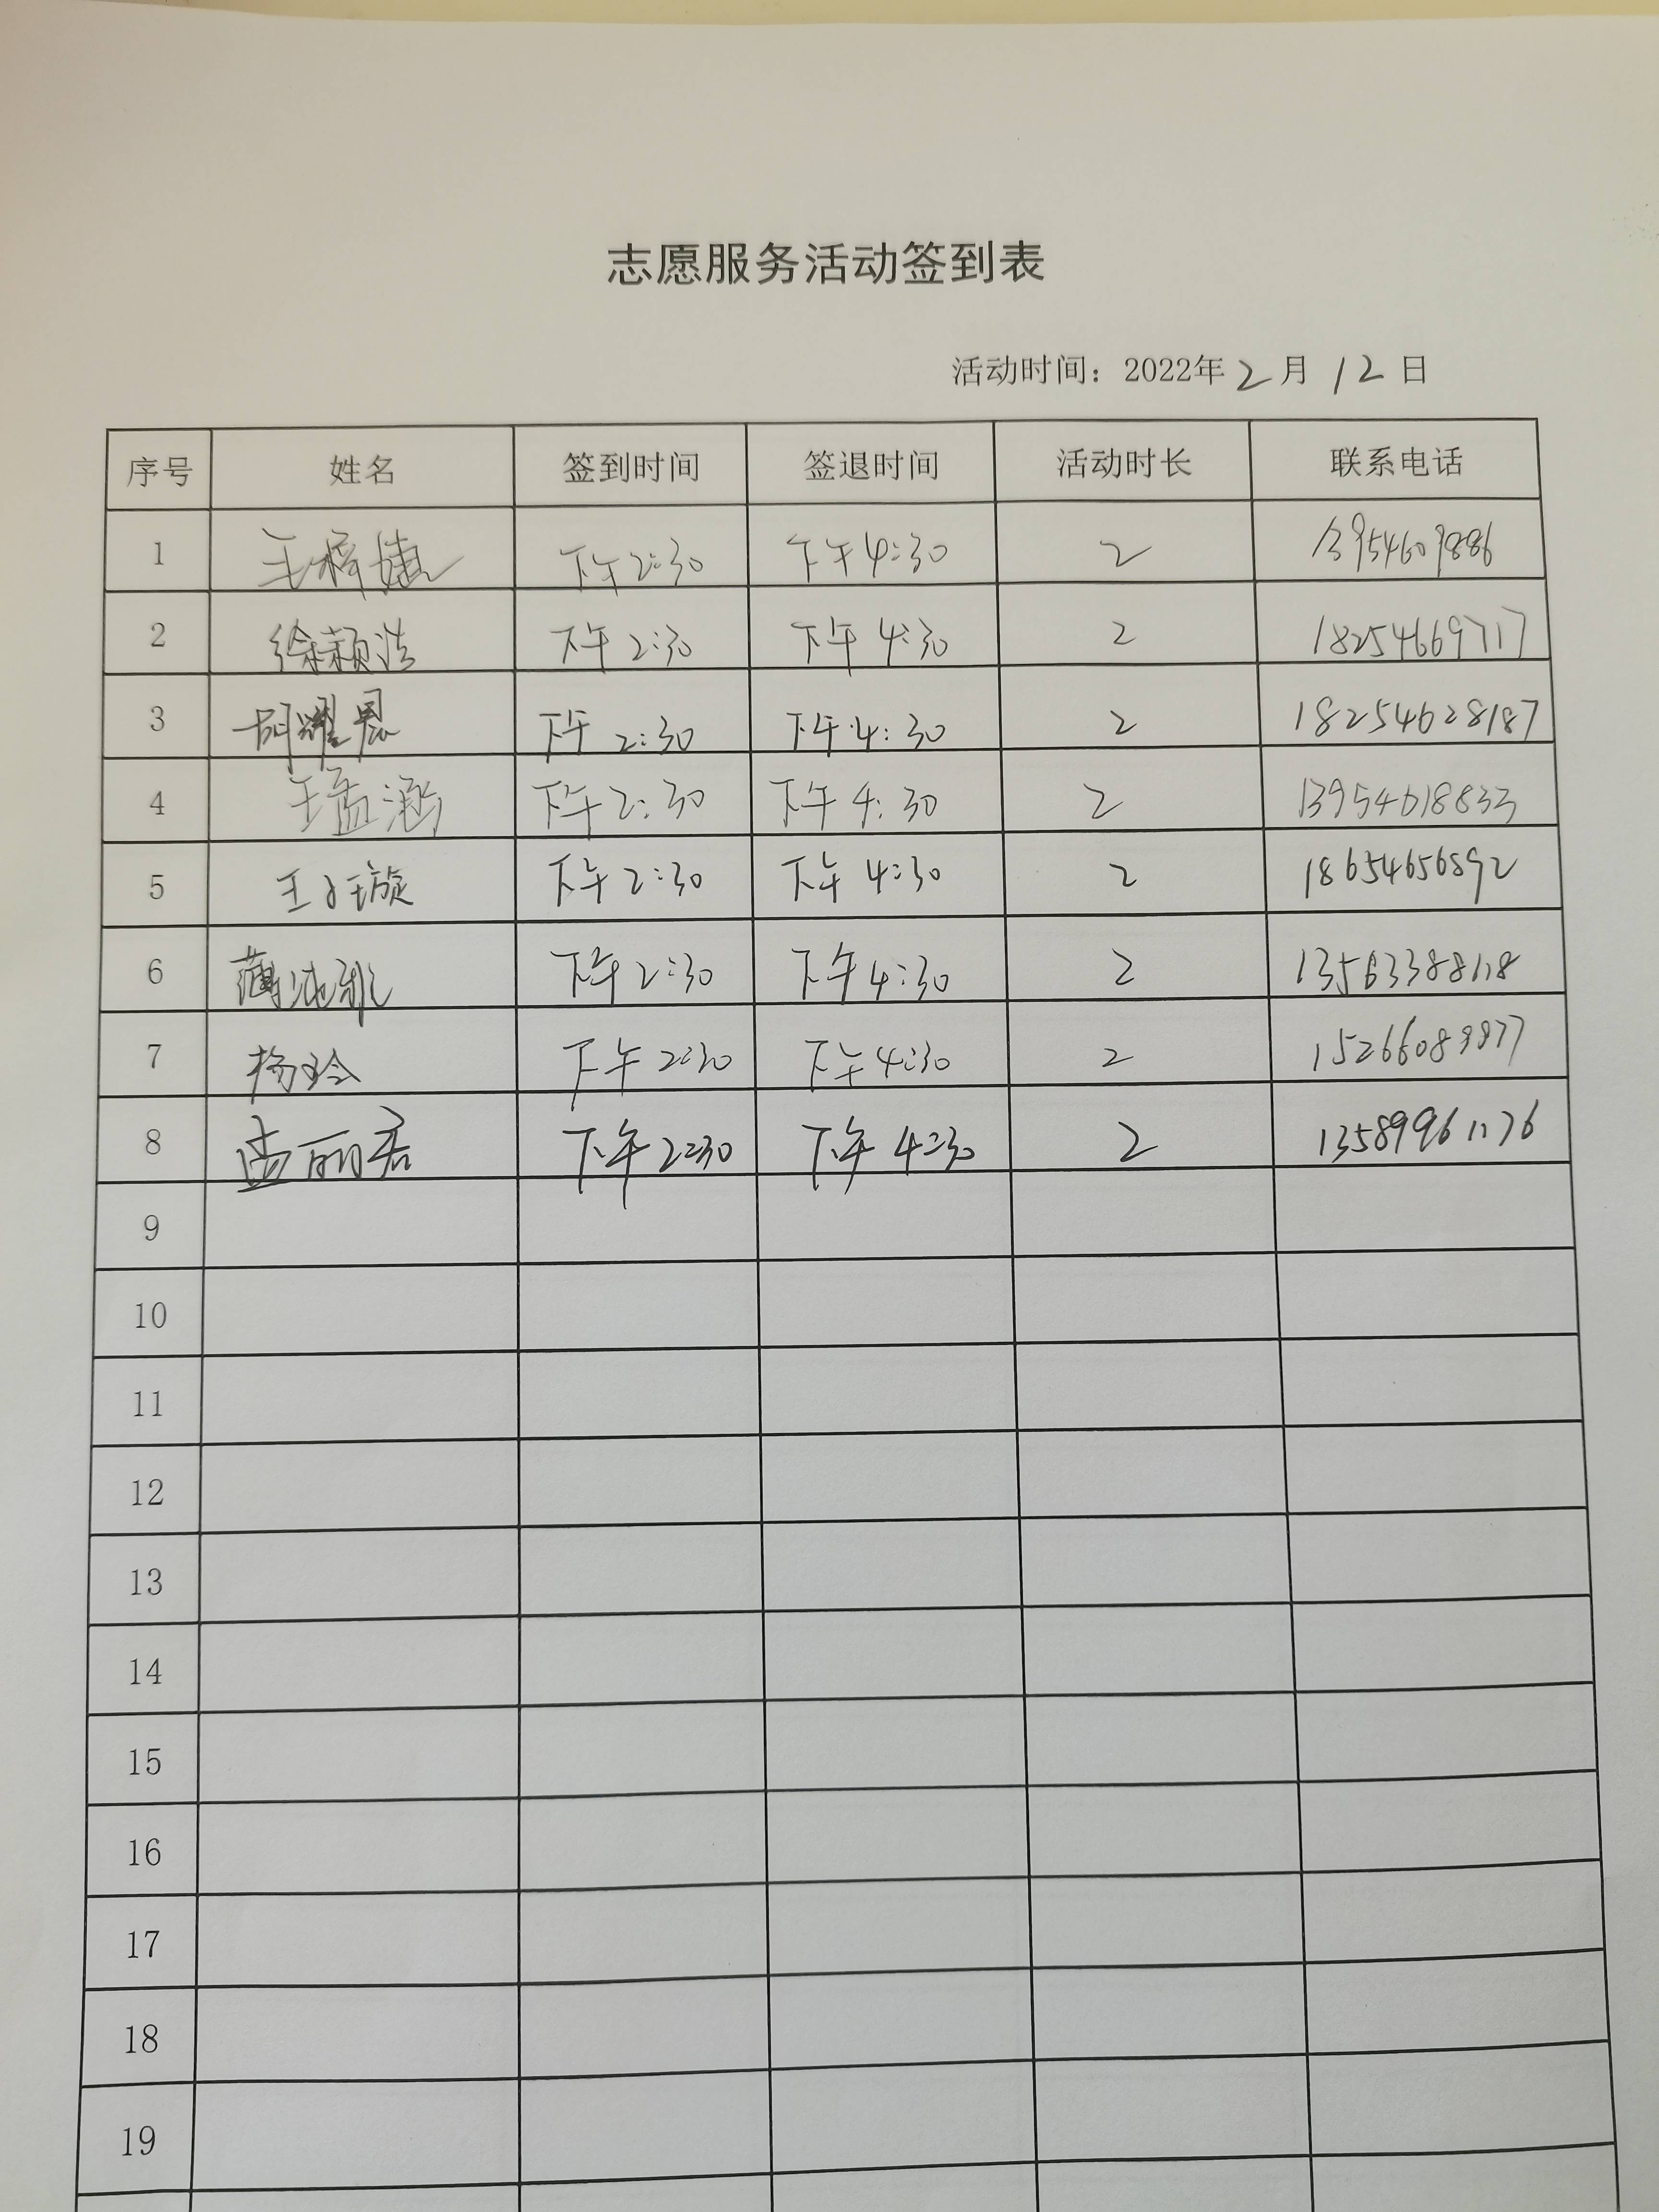 志愿服务活动签到表
活动时间：2022年2月12日
序号 姓名 签到时间 签退时间 活动时长 联系电话
1 王梓婕 下午2:30 下午4:30 2 13954609886
2 徐颖浩 下午2:30 下午4:30 2 18254669717
3 胡耀恩 下午2:30 下午4:30 2 18254628187
4 王孟涵 下午2:30 下午4:30 2 13954618833
5 下午2:30 下午4:30 2 18654656892
6 下午2:30 下午4:30 2
7 杨玲 下午2:30 下午4:30 2
8 孟丽君 下午2:30 下午4:30 2 13589961176
9
10
11
12
13
14
15
16
17
18
19